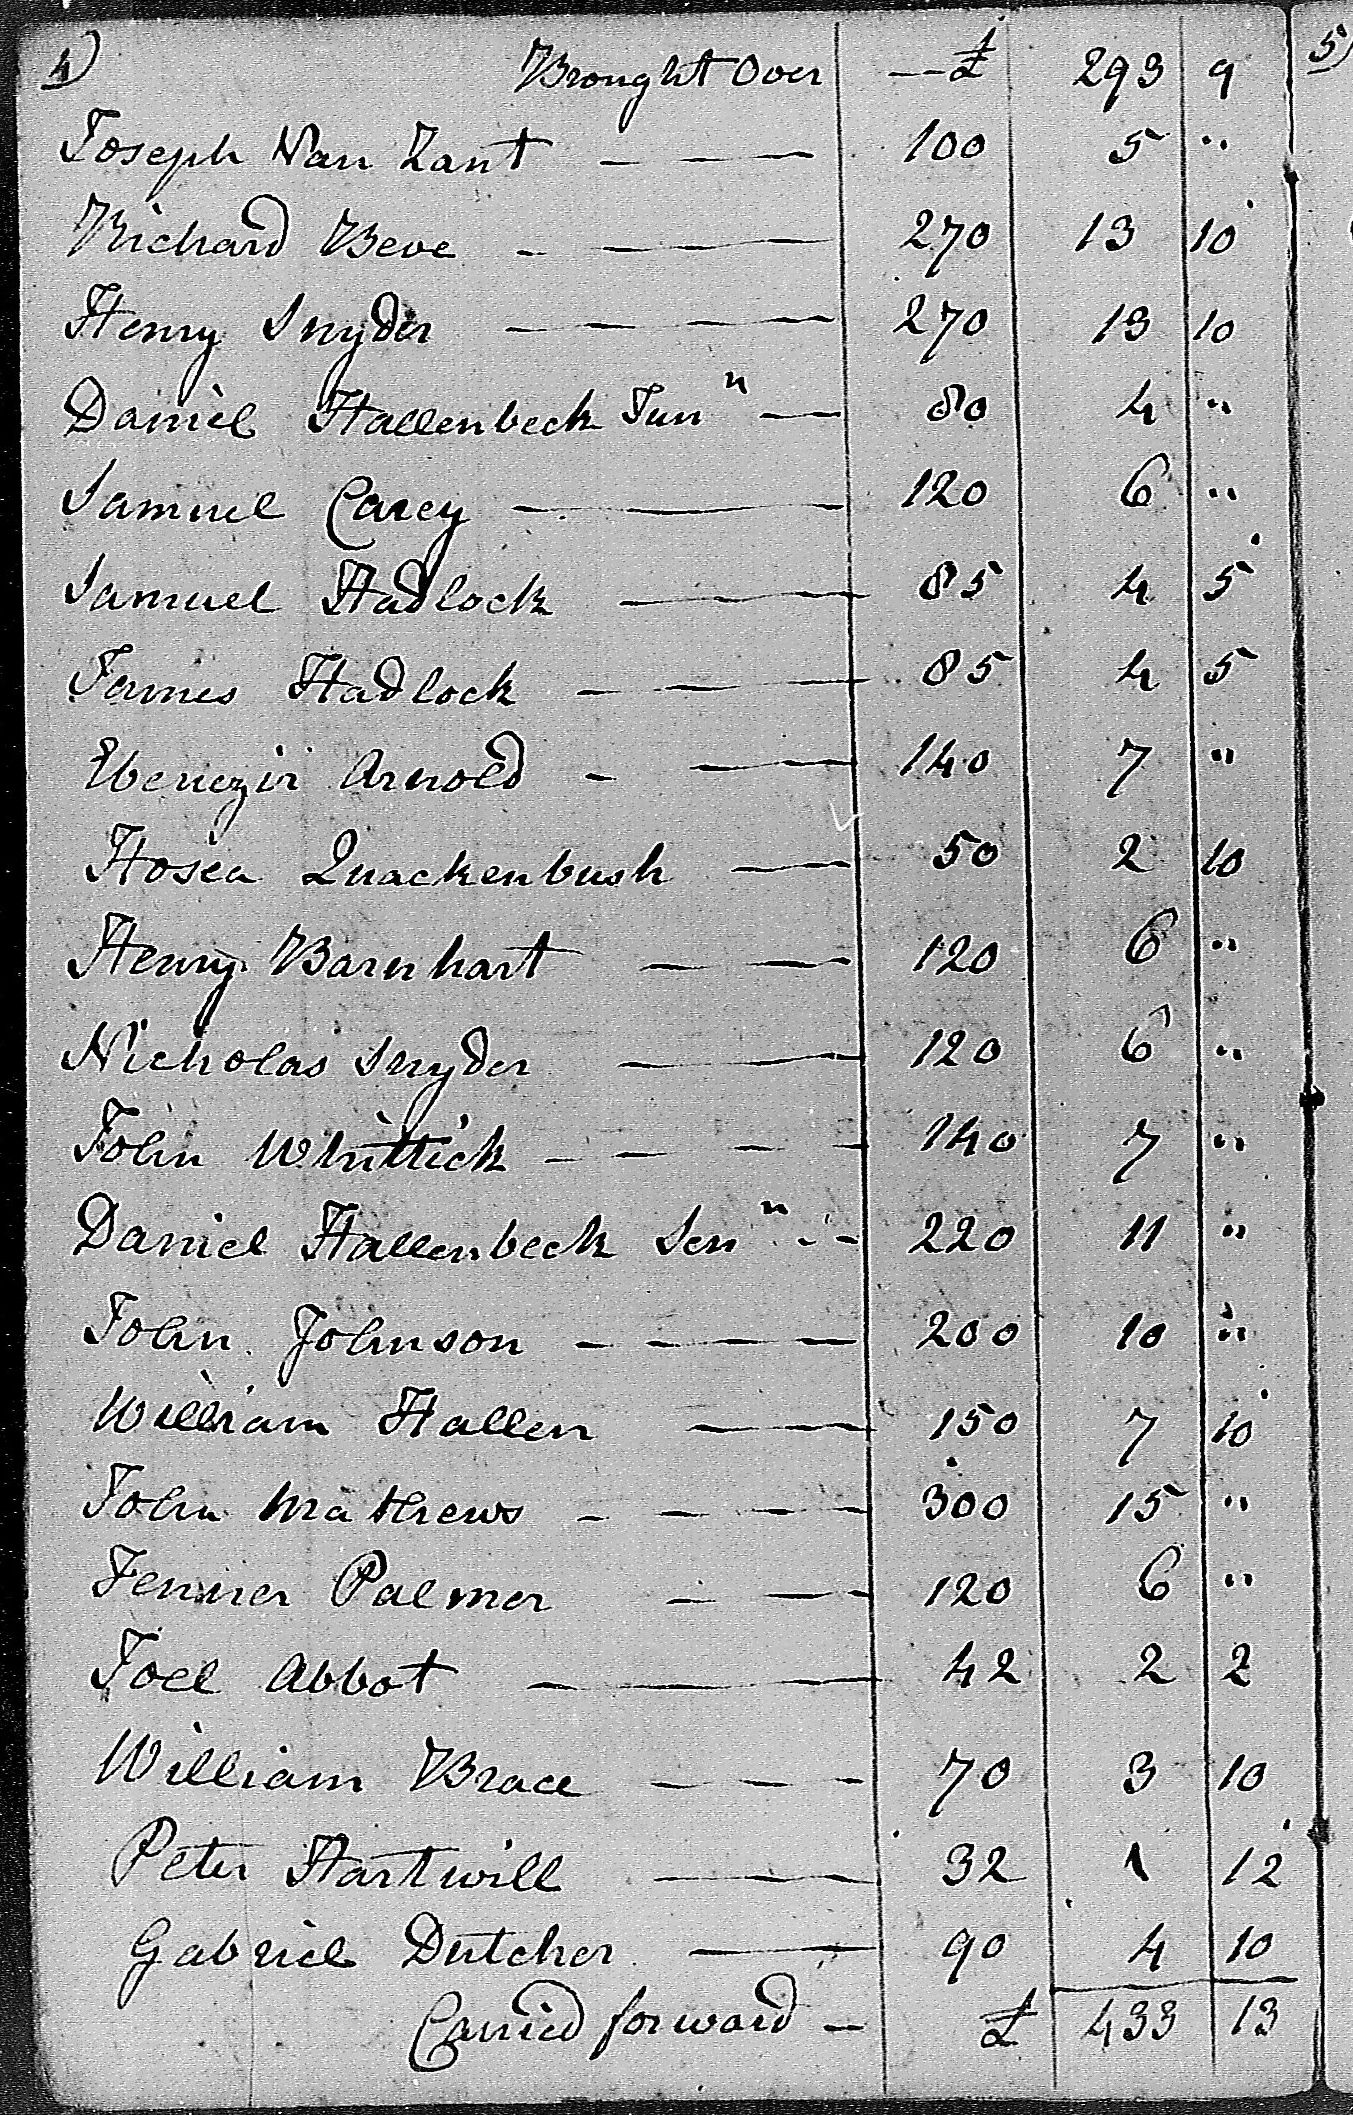 4) Brought Over — £ 293 9
Joseph Van Zant — — — 100 5 "
Richard Beve - — — — 270 13 10
Henry Snyder — — — — 270 13 10
Daniel Hallenbeck Junr — 80 4 "
Samuel Carey — — — 120 6 "
Samuel Hadlock — — — 85 4 5
James Hadlock — — — 85 4 5
Ebenezir Arnold - — — 140 7 "
Hosea Quackenbush — — 50 2 10
Henry Barnhart — — — 120 6 "
Nicholas Snyder — — — 120 6 "
John Whittick — — — — 140 7 "
Daniel Hallenbeck Senr - - 220 11 "
John Johnson — — — — 200 10 "
William Hallen — — — 150 7 10
John Mathews — — — — 300 15 "
Fenner Palmer — — — 120 6 "
Joel Abbot — — — — 42 2 2
William Brace — — — 70 3 10
Peter Hartwill — — — 32 1 12
Gabriel Dutcher — — 90 4 10
Carried forward — £ 433 13
5)